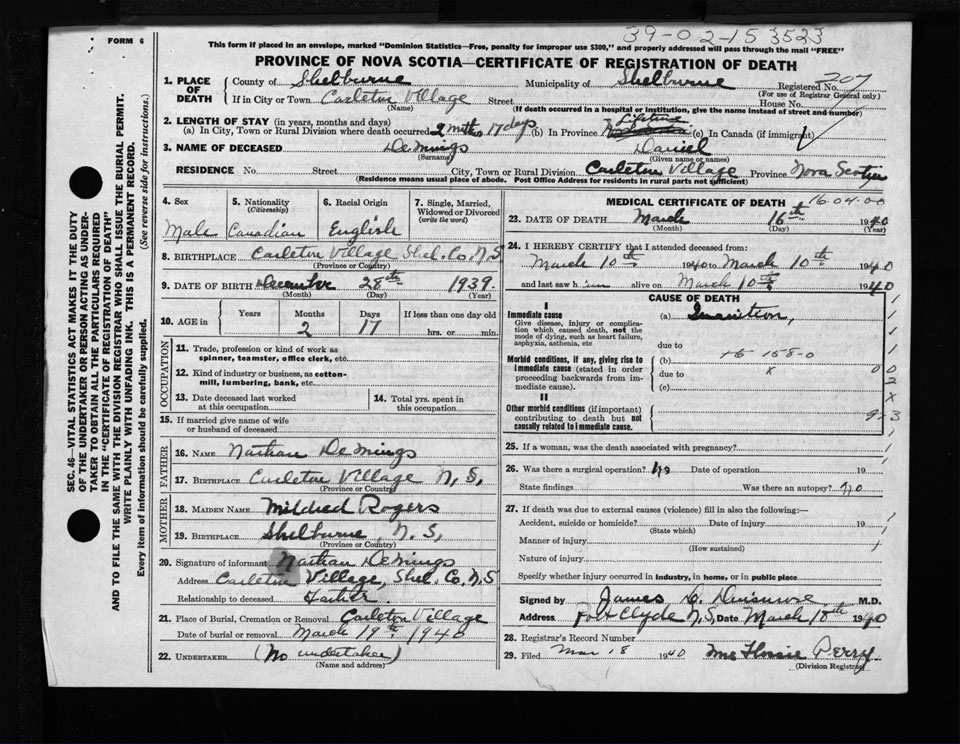 FORM 6
39-02-15 3523
This form if placed in an envelope, marked "Dominion Statistics—Free, penalty for improper use $300," and properly addressed will pass through the mail "FREE"
PROVINCE OF NOVA SCOTIA—CERTIFICATE OF REGISTRATION OF DEATH
1. PLACE OF DEATH
County of Shelburne Municipality of Shelburne Registered No. 207
(For use of Registrar General only)
If in City or Town Carleton Village Street House No.
(Name) (If death occurred in a hospital or institution, give the name instead of street and number)
2. LENGTH OF STAY (in years, months and days)
(a) In City, Town or Rural Division where death occurred 2 mths 17 days (b) In Province Lifetime (c) In Canada (if immigrant)
3. NAME OF DECEASED DeMings Daniel
(Surname) (Given name or names)
RESIDENCE No. Street City, Town or Rural Division Carleton Village Province Nova Scotia
(Residence means usual place of abode. Post Office Address for residents in rural parts not sufficient)
4. Sex
Male
5. Nationality
(Citizenship)
Canadian
6. Racial Origin
English
7. Single, Married, Widowed or Divorced
(write the word)
8. BIRTHPLACE Carleton Village Shel. Co. N S
(Province or Country)
9. DATE OF BIRTH December 28th 1939.
(Month) (Day) (Year)
10. AGE in
Years Months Days If less than one day old
2 17 hrs. or min.
OCCUPATION
11. Trade, profession or kind of work as
spinner, teamster, office clerk, etc.
12. Kind of industry or business, as cotton-
mill, lumbering, bank, etc.
13. Date deceased last worked
at this occupation
14. Total yrs. spent in
this occupation
15. If married give name of wife
or husband of deceased
FATHER
16. NAME Nathan DeMings
17. BIRTHPLACE Carleton Village N, S,
(Province or Country)
MOTHER
18. MAIDEN NAME Mildred Rogers
19. BIRTHPLACE Shelburne, N. S,
(Province or Country)
20. Signature of informant Nathan DeMings
Address Carleton Village, Shel. Co, N.S
Relationship to deceased Father
21. Place of Burial, Cremation or Removal Carleton Village
Date of burial or removal March 19th 1940
22. UNDERTAKER (No undertaker)
(Name and address)
MEDICAL CERTIFICATE OF DEATH
16.04.00
23. DATE OF DEATH March 16th 1940
(Month) (Day) (Year)
24. I HEREBY CERTIFY that I attended deceased from:
March 10th 1940 to March 10th 1940
and last saw him alive on March 10th 1940
CAUSE OF DEATH
I
Immediate cause
Give disease, injury or complica-
tion which caused death, not the
mode of dying, such as heart failure,
asphyxia, asthenia, etc
(a) Inanition,
due to
Morbid conditions, if any, giving rise to
immediate cause (stated in order
proceeding backwards from im-
mediate cause).
(b) 158-0
due to x
(c)
II
Other morbid conditions (if important)
contributing to death but not
causally related to immediate cause.
25. If a woman, was the death associated with pregnancy?
26. Was there a surgical operation? No Date of operation 19
State findings Was there an autopsy? no
27. If death was due to external causes (violence) fill in also the following:—
Accident, suicide or homicide? Date of injury 19
(State which)
Manner of injury
(How sustained)
Nature of injury
Specify whether injury occurred in industry, in home, or in public place
Signed by James M.D.
Address Port Clyde N.S, Date March 18th 1940
28. Registrar's Record Number
29. Filed Mar 18 1940 Mrs Flossie Perry
(Division Registrar)
SEC. 46—VITAL STATISTICS ACT MAKES IT THE DUTY
OF THE UNDERTAKER OR PERSON ACTING AS UNDER-
TAKER TO OBTAIN ALL THE PARTICULARS REQUIRED
IN THE "CERTIFICATE OF REGISTRATION OF DEATH"
AND TO FILE THE SAME WITH THE DIVISION REGISTRAR WHO SHALL ISSUE THE BURIAL PERMIT.
WRITE PLAINLY WITH UNFADING INK. THIS IS A PERMANENT RECORD.
Every item of information should be carefully supplied. (See reverse side for instructions.)